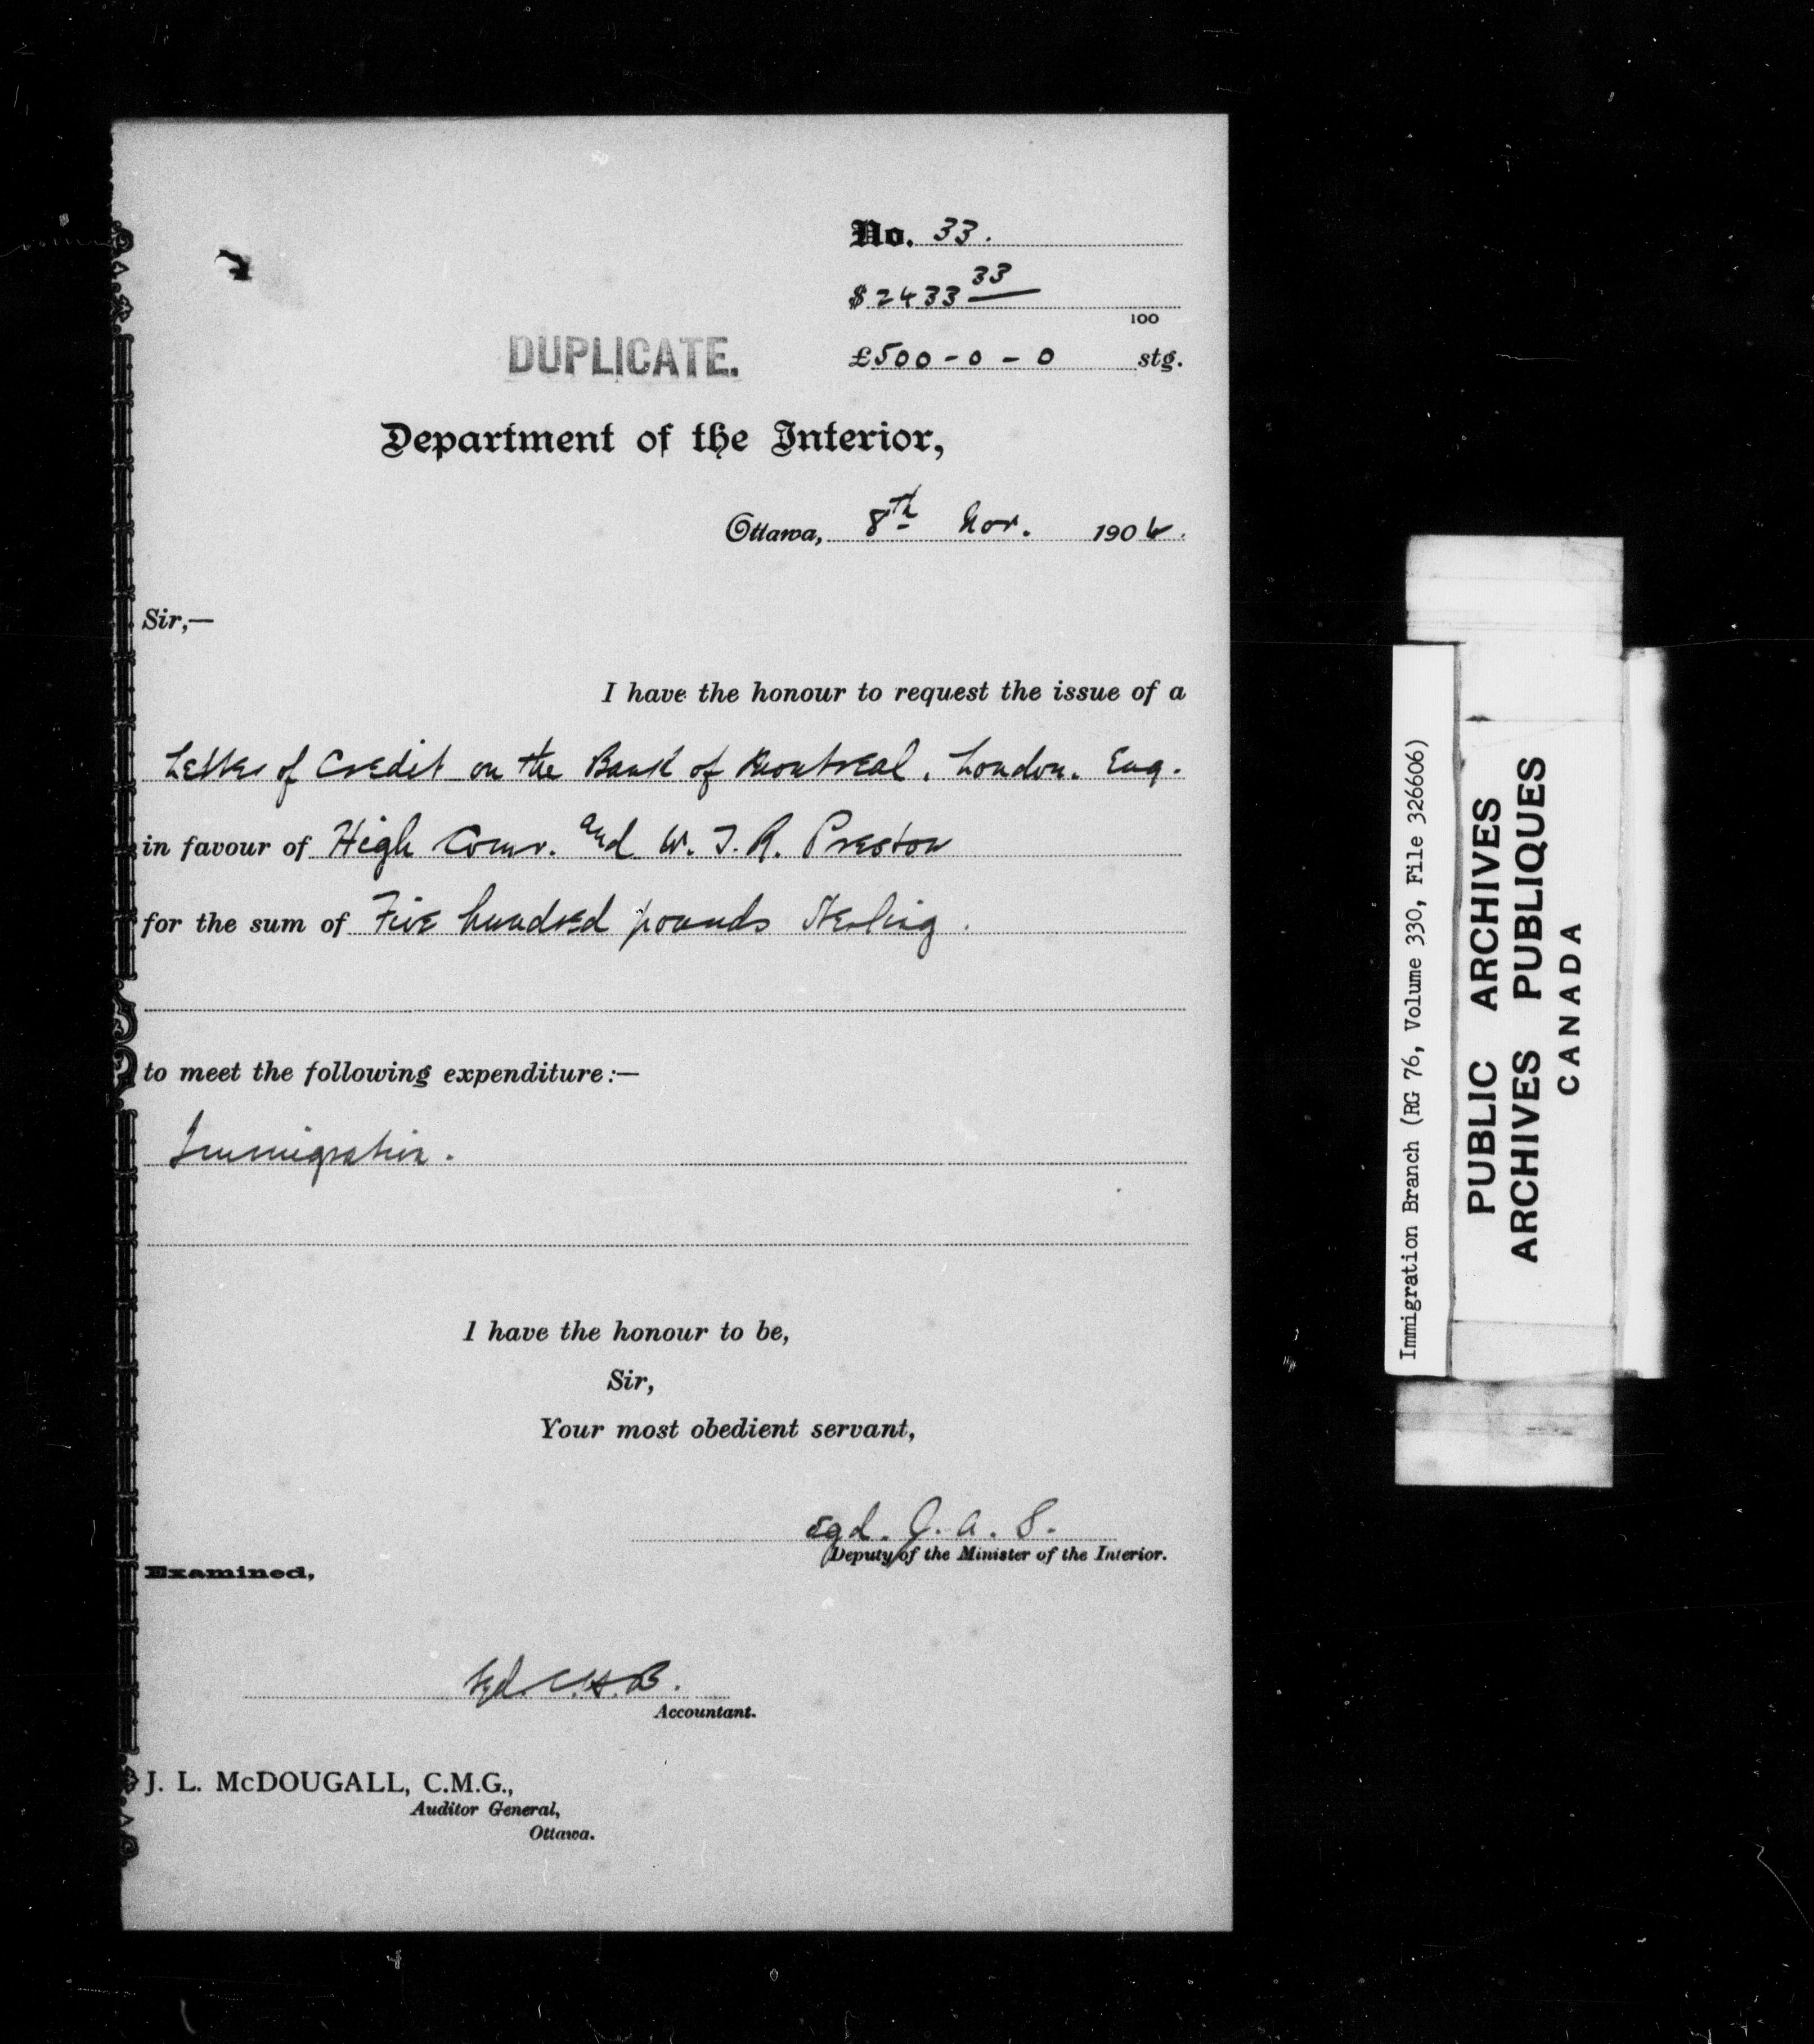 No. 33.
$ 2433 33
100
DUPLICATE.
£500-0-0 stg.
Department of the Interior,
Ottawa, 8th Nov. 1904.
Sir,—
I have the honour to request the issue of a
Letter of Credit on the Bank of Montreal. London. Eng.
in favour of High Comr. and W. T. R. Preston
for the sum of Five hundred pounds Sterling.
to meet the following expenditure:—
Immigration.
I have the honour to be,
Sir,
Your most obedient servant,
Sgd. J. A. S.
Deputy of the Minister of the Interior.
Examined,
Sgd. C.H.B.
Accountant.
J. L. McDOUGALL, C.M.G.,
Auditor General,
Ottawa.
Immigration Branch (RG 76, Volume 330, File 326606)
PUBLIC ARCHIVES
ARCHIVES PUBLIQUES
CANADA